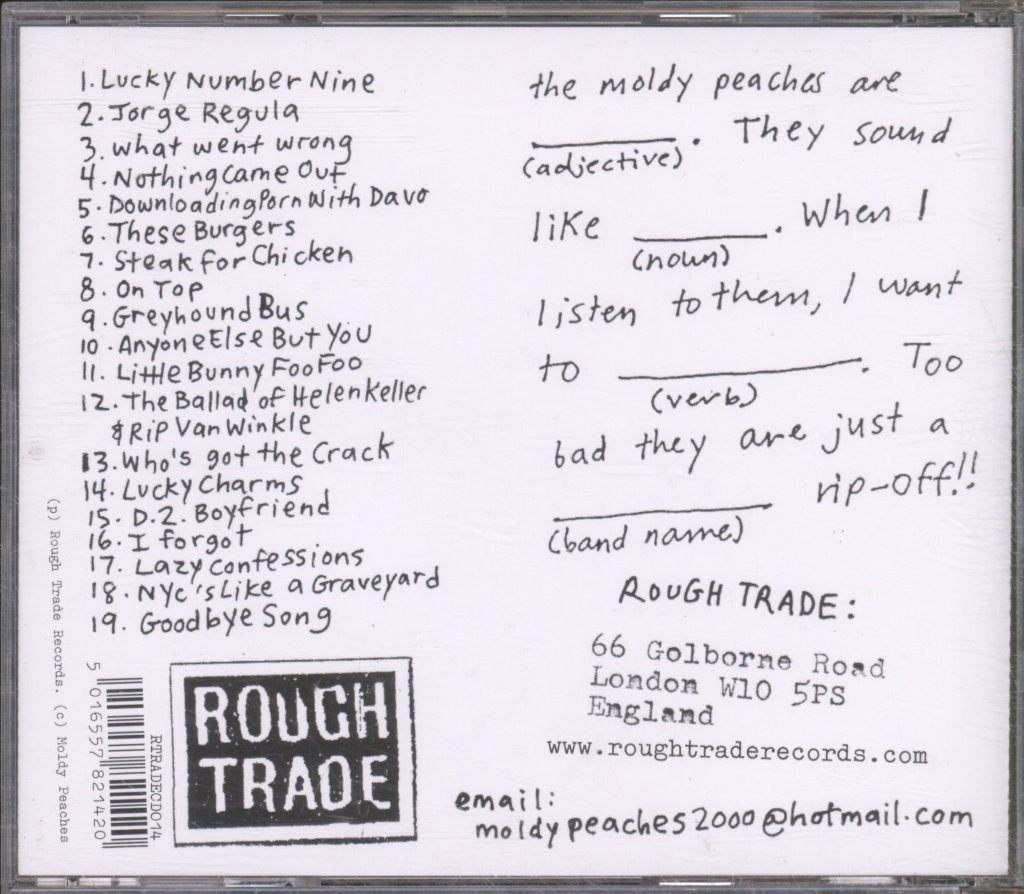 1. Lucky Number Nine
2. Jorge Regula
3. what went wrong
4. Nothing Came Out
5. Downloading Porn With Davo
6. These Burgers
7. Steak for Chicken
8. On Top
9. Greyhound Bus
10. Anyone Else But You
11. Little Bunny Foo Foo
12. The Ballad of Helen Keller
& Rip Van Winkle
13. Who's got the Crack
14. Lucky Charms
15. D.2. Boyfriend
16. I forgot
17. Lazy Confessions
18. NYC's Like a Graveyard
19. Goodbye Song
the moldy peaches are
________. They sound
(adjective)
like ________. When I
(noun)
listen to them, I want
to ____________. Too
(verb)
bad they are just a
____________ rip-off!!
(band name)
ROUGH TRADE:
66 Golborne Road
London W10 5PS
England
www.roughtraderecords.com
email:
moldypeaches2000@hotmail.com
ROUGH
TRADE
RTRADECD014
5 016557 821420
(p) Rough Trade Records. (c) Moldy Peaches